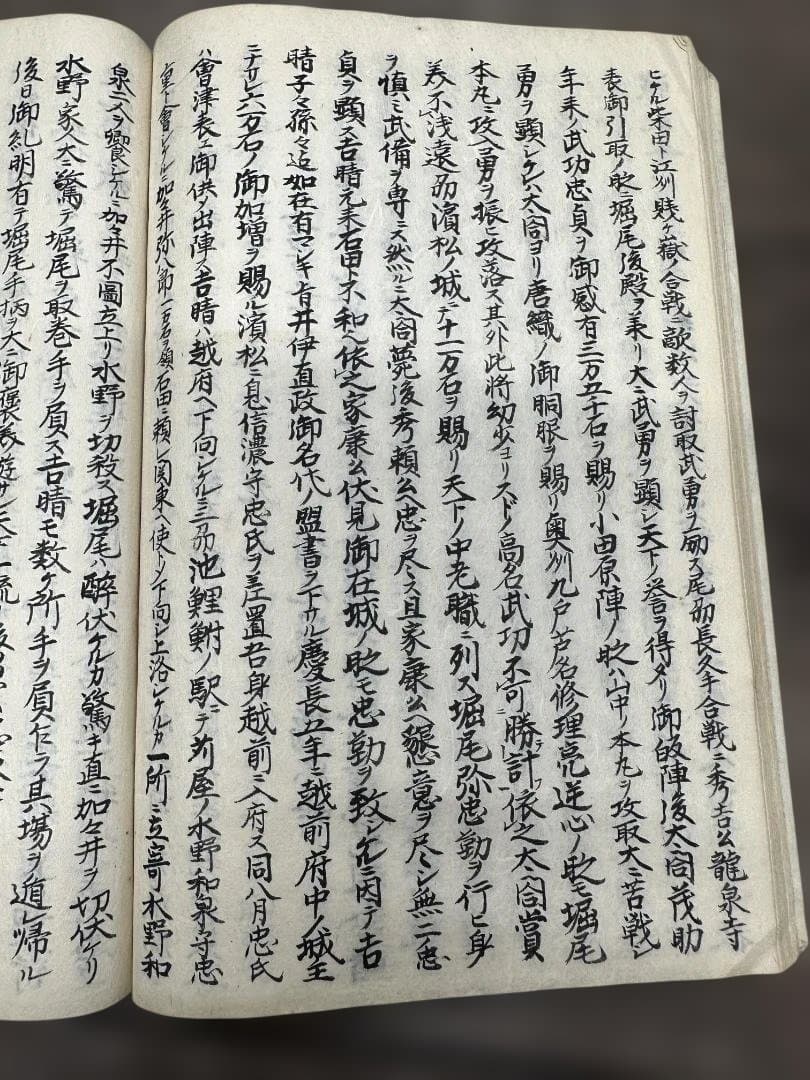 ヒケル柴田ト江刕賤ケ嶽ノ合戦ニ敵数人ヲ討取武勇ヲ励ス尾刕長久手合戦ニ秀吉公龍泉寺
表御引取ノ時堀尾後殿ヲ美リ大ニ武勇ヲ顕シ天下ノ誉ヲ得タリ御皈陣後太閤茂助
年来ノ武功忠貞ヲ御感有三万五千石ヲ賜リ小田原陣ノ時ハ山中ノ本丸ヲ攻取大ニ苦戦シ
勇ヲ顕シケレハ太閤ヨリ唐織ノ御胴服ヲ賜リ奥刕九戸芦名修理亮逆心ノ時モ堀尾
本丸ニ攻入勇ヲ振ヒ攻落ス其外此将幼少ヨリスドノ高名武功不可勝計依之太閤賞
美不浅遠刕濱松ノ城ニテ十一万石ヲ賜リ天下ノ中老職ニ列ス堀尾弥忠勤ヲ行ヒ身
ヲ慎ミ武備ヲ専ニス然ルニ太閤薨後秀頼公ヘ忠ヲ尽ス且家康公ヘ懇意ヲ尽シ無二ノ忠
貞ヲ顕ス吉晴元来石田ト不和ヘ依之家康公伏見御在城ノ時モ忠勤ヲ致シケルニ因テ吉
晴子々孫々迠如在有マシキ旨井伊直政御名代ノ盟書ヲ下サル慶長五年ニ越前府中ノ城主
ニナサレ六万石ノ御加増ヲ賜ル濱松ニ息信濃守忠氏ヲ差置吾身越前ニ入府ス同八月忠氏
ハ會津表エ御供タ出陣ス吉晴ハ越府ヘ下向シケルニ三刕池鯉鮒ノ駅ニテ苅屋ノ水野和泉守忠
重ト會シケルニ加々井弥八郎一万石ヲ領石田ニ頼レ関東ヘ使トノ下向シ上洛シケルカ一所ニ立寄水野和
泉二人ヲ饗シケルニ加々井不圖立上リ水野ヲ切殺ス堀尾ハ醉伏ケルカ驚キ直ニ加々井ヲ切伏ケリ
水野家人大ニ驚テ堀尾ヲ取巻手ヲ屓ス吉晴モ数ケ所手ヲ屓ナラ其場ヲ遁レ帰ル
後日御糺明有テ堀尾手柄ヲ大ニ御褒美遊サレ天下